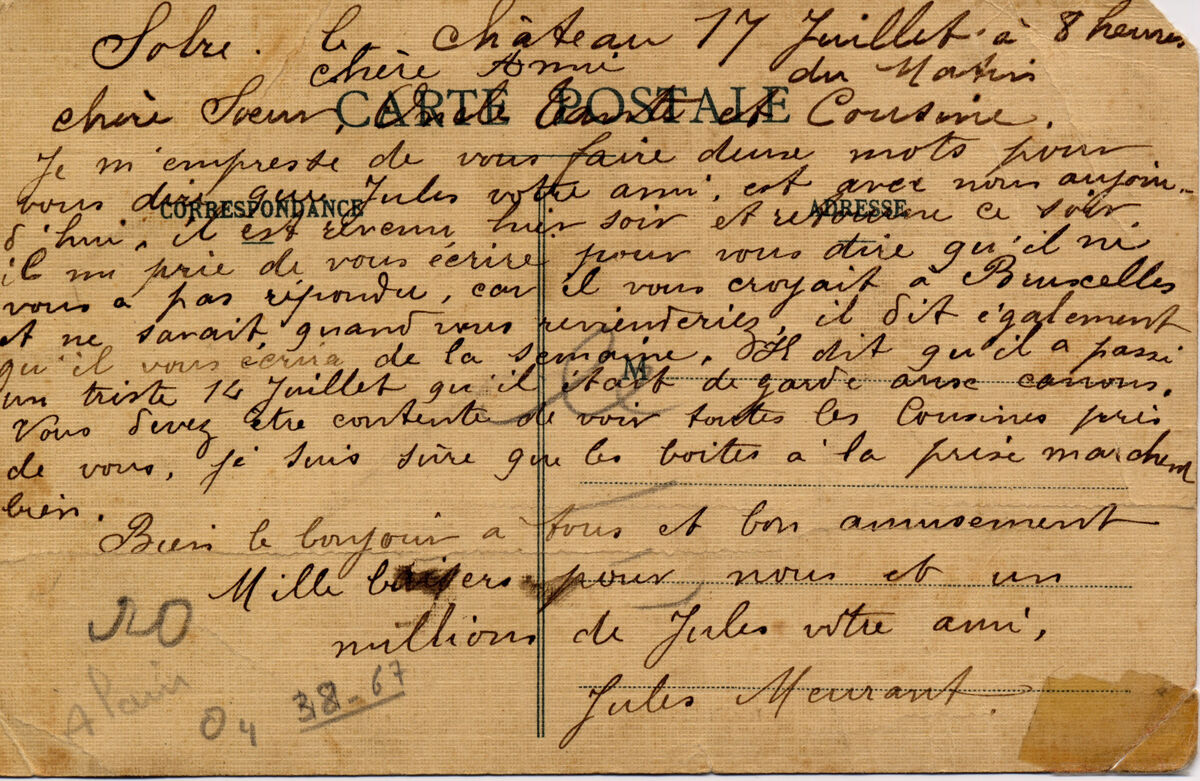 Solre. le château 17 Juillet à 8 heures
du Matin
chère Amie
CARTE POSTALE
chère Soeur, Oncle tante et Cousine.
Je m'empresse de vous faire deux mots pour
vous dire que Jules votre ami, est avec nous aujour-
CORRESPONDANCE
ADRESSE
d'hui, il est revenu hier soir et retourne ce soir,
il me prie de vous écrire pour vous dire qu'il ne
vous a pas répondu, car il vous croyait à Bruxelles
et ne savait quand vous reviendriez, il dit également
qu'il vous écrira de la semaine. Il dit qu'il a passé
M
un triste 14 Juillet qu'il était de garde aux canons.
Vous devez être contente de voir toutes les Cousines près
de vous, je suis sûre que les boites à la prise marchent
bien.
Bien le bonjour a tous et bon amusement
Mille baisers pour nous et un
millions de Jules votre ami,
Jules Meurant.
20
Alain
04
38-67